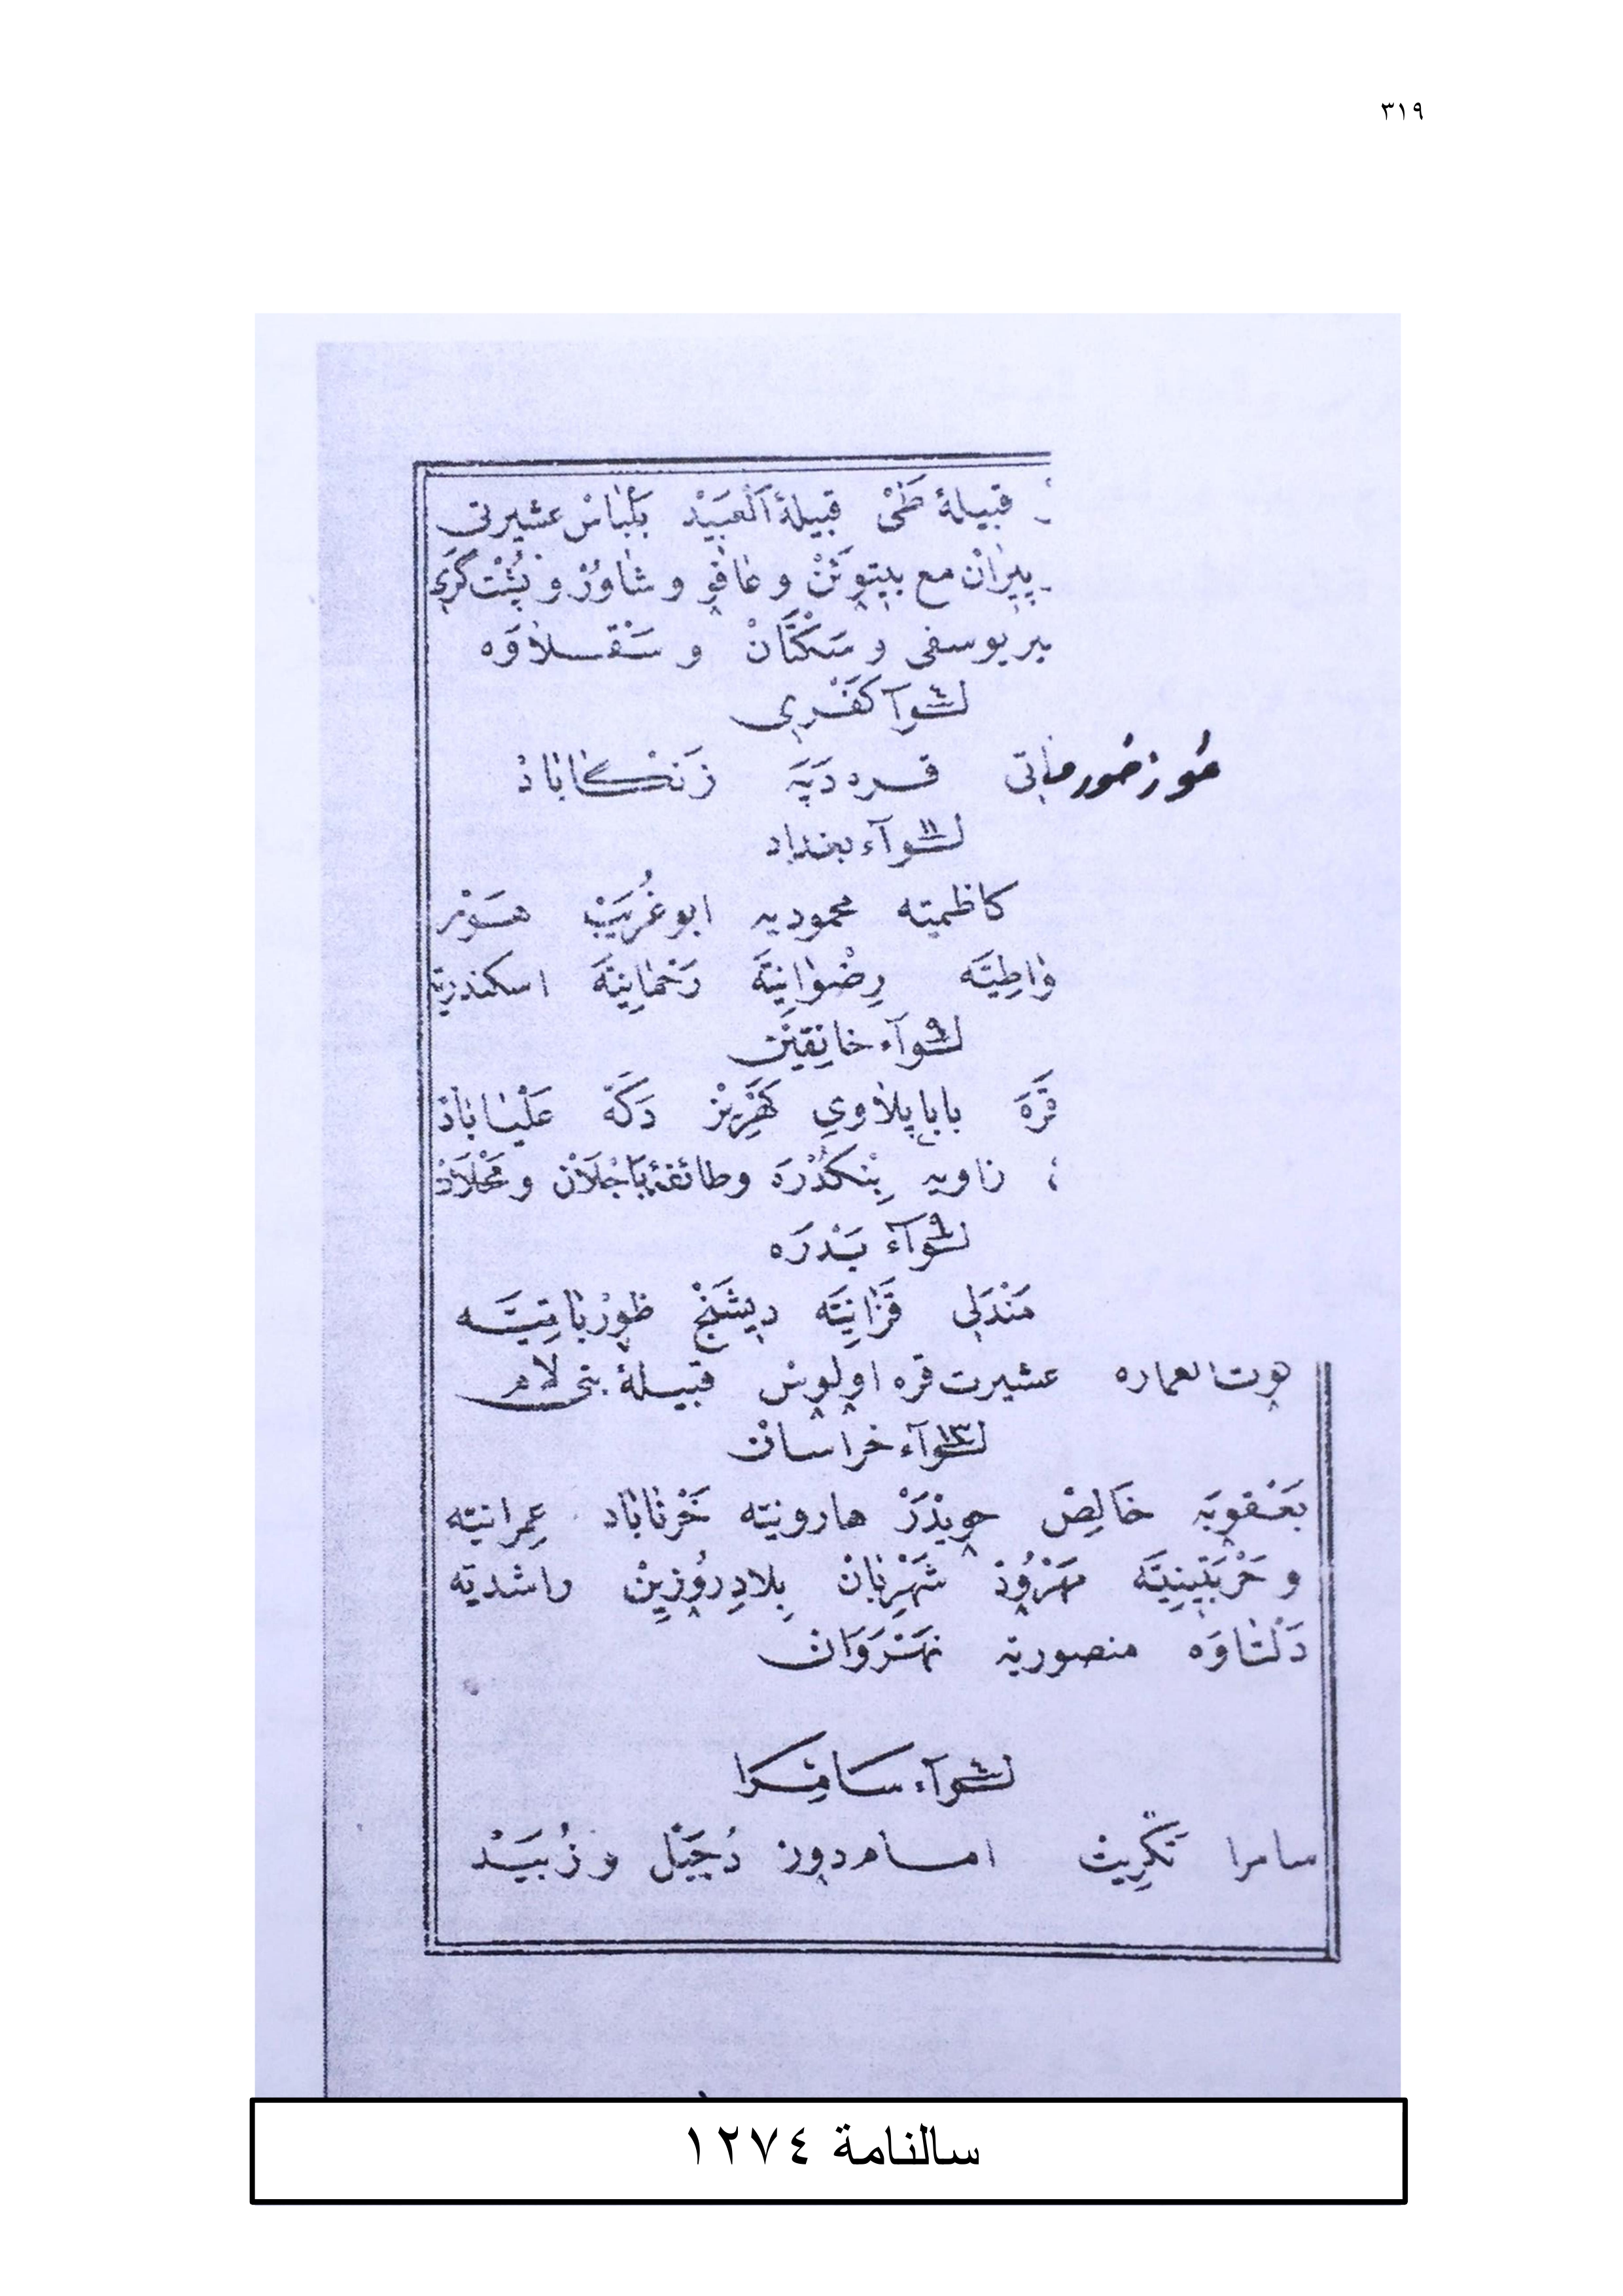 ٣١٩
قبيلۀ طَىْ قبيلۀ اَلْعبَيْد بَلْبَاسْ عشيرتى
پيرَانْ مع بيتوتَنْ و عافو و شاوُرْ و پُشْت كَرى
پير يوسفى و سَكْتَانْ و سَقْلاَوَه
لوآ كَفْرى
طوز خورماتى قره دَپَه زَنكاباد
لوآء بغداد ١١
كاظميّه محموديه ابوغُرَيبْ هَوْر
وَاطِيَّه رِضْوانِيَّه رَحْمانِيَّه اسكندريّه
لوآء خانقين ٩
قَرَه باباپلاوى كَهْرِيزْ دَكَّه عَلْياباد
زاويه بِنْكُدْرَه وطائفۀ بَاجَلاَنْ و مَحْلاَدْ
لوآء بَدْرَه ٩
مَنْدَلى قَزَانِيَّه ديشَيْخْ ظورْبَاتِيَّه
كوت العماره عشيرت قره اولوس قبيلۀ بنى لام
لوآء خراسان ١٣
بَعْقوبَه خَالِصْ حويْدَرْ هارونيّه خَرْنَابَاد عِمرانيّه
و حَرْبَتِينِيَّه مَهْرُودْ شَهْرِبَانْ بِلادِرُوزِينْ راشديّه
دَلتاوَه منصوريّه نَهْرَوَان
لوآء سامِرا ٤
سامرا تَكْرِيتْ امام دور دُجَيْل و زُبَيْد
سالنامة ١٢٧٤